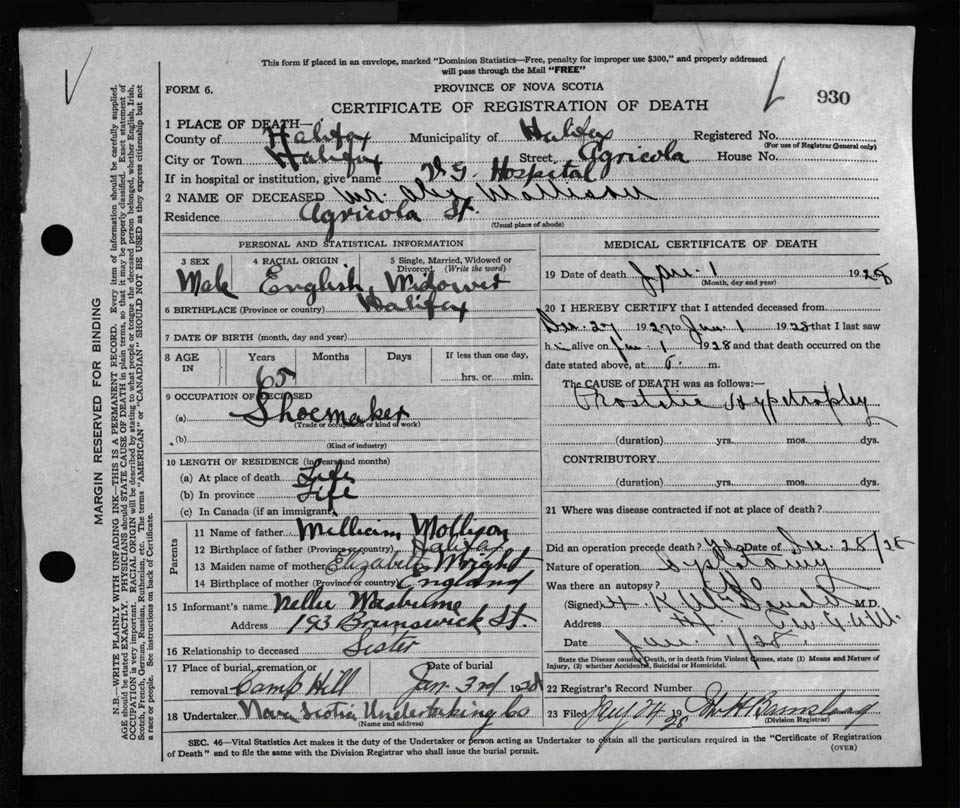 This form if placed in an envelope, marked "Dominion Statistics—Free, penalty for improper use $300," and properly addressed
will pass through the Mail "FREE"
FORM 6.
PROVINCE OF NOVA SCOTIA
930
CERTIFICATE OF REGISTRATION OF DEATH
1 PLACE OF DEATH—
County of Halifax Municipality of Halifax Registered No.
(For use of Registrar General only)
City or Town Halifax Street, Agricola House No.
If in hospital or institution, give name V G Hospital
2 NAME OF DECEASED Mr. Alex Mollison
Residence Agricola St.
(Usual place of abode)
PERSONAL AND STATISTICAL INFORMATION
3 SEX 4 RACIAL ORIGIN 5 Single, Married, Widowed or
Divorced. (Write the word)
Male English Widower
6 BIRTHPLACE (Province or country) Halifax
7 DATE OF BIRTH (month, day and year)
8 AGE IN Years Months Days If less than one day,
65 hrs. or min.
9 OCCUPATION OF DECEASED
(a) Shoemaker
(Trade or occupation or kind of work)
(b)
(Kind of industry)
10 LENGTH OF RESIDENCE (in years and months)
(a) At place of death Life
(b) In province Life
(c) In Canada (if an immigrant)
Parents
11 Name of father William Mollison
12 Birthplace of father (Province or country) Halifax
13 Maiden name of mother Elizabeth Wright
14 Birthplace of mother (Province or country) England
15 Informant's name Nellie
Address 193 Brunswick St.
16 Relationship to deceased Sister
17 Place of burial, cremation or Date of burial
removal Camp Hill Jan 3rd 1928
18 Undertaker Nova Scotia Undertaking Co
(Name and address)
MEDICAL CERTIFICATE OF DEATH
19 Date of death Jan. 1 1928
(Month, day and year)
20 I HEREBY CERTIFY that I attended deceased from
Dec. 27 1927 to Jan. 1 1928 that I last saw
him alive on Jan 1 1928 and that death occurred on the
date stated above, at m.
The CAUSE OF DEATH was as follows:—
Prostatic Hypetrophy
(duration) yrs. mos. dys.
CONTRIBUTORY.
(duration) yrs. mos. dys.
21 Where was disease contracted if not at place of death?
Did an operation precede death? yes Date of Dec. 28/28
Nature of operation
Was there an autopsy? No
(Signed) M.D.
Address
Date Jan. 1/28.
State the Disease causing Death, or in death from Violent Causes, state (1) Means and Nature of
Injury, (2) whether Accidental, Suicidal or Homicidal.
22 Registrar's Record Number
23 Filed Jany 24 1928
(Division Registrar)
SEC. 46—Vital Statistics Act makes it the duty of the Undertaker or person acting as Undertaker to obtain all the particulars required in the "Certificate of Registration
of Death" and to file the same with the Division Registrar who shall issue the burial permit.
(OVER)
MARGIN RESERVED FOR BINDING
N.B.—WRITE PLAINLY WITH UNFADING INK—THIS IS A PERMANENT RECORD. Every item of information should be carefully supplied.
AGE should be stated EXACTLY. PHYSICIANS should STATE CAUSE OF DEATH in plain terms, so that it may be properly classified. Exact statement of
OCCUPATION is very important. RACIAL ORIGIN will be described by stating to what people or tongue the deceased person belonged, whether English, Irish,
Scotch, French, German, Russian, Ruthenian, etc. The terms "AMERICAN" or "CANADIAN" SHOULD NOT BE USED as they express citizenship but not
a race or people. See instructions on back of Certificate.